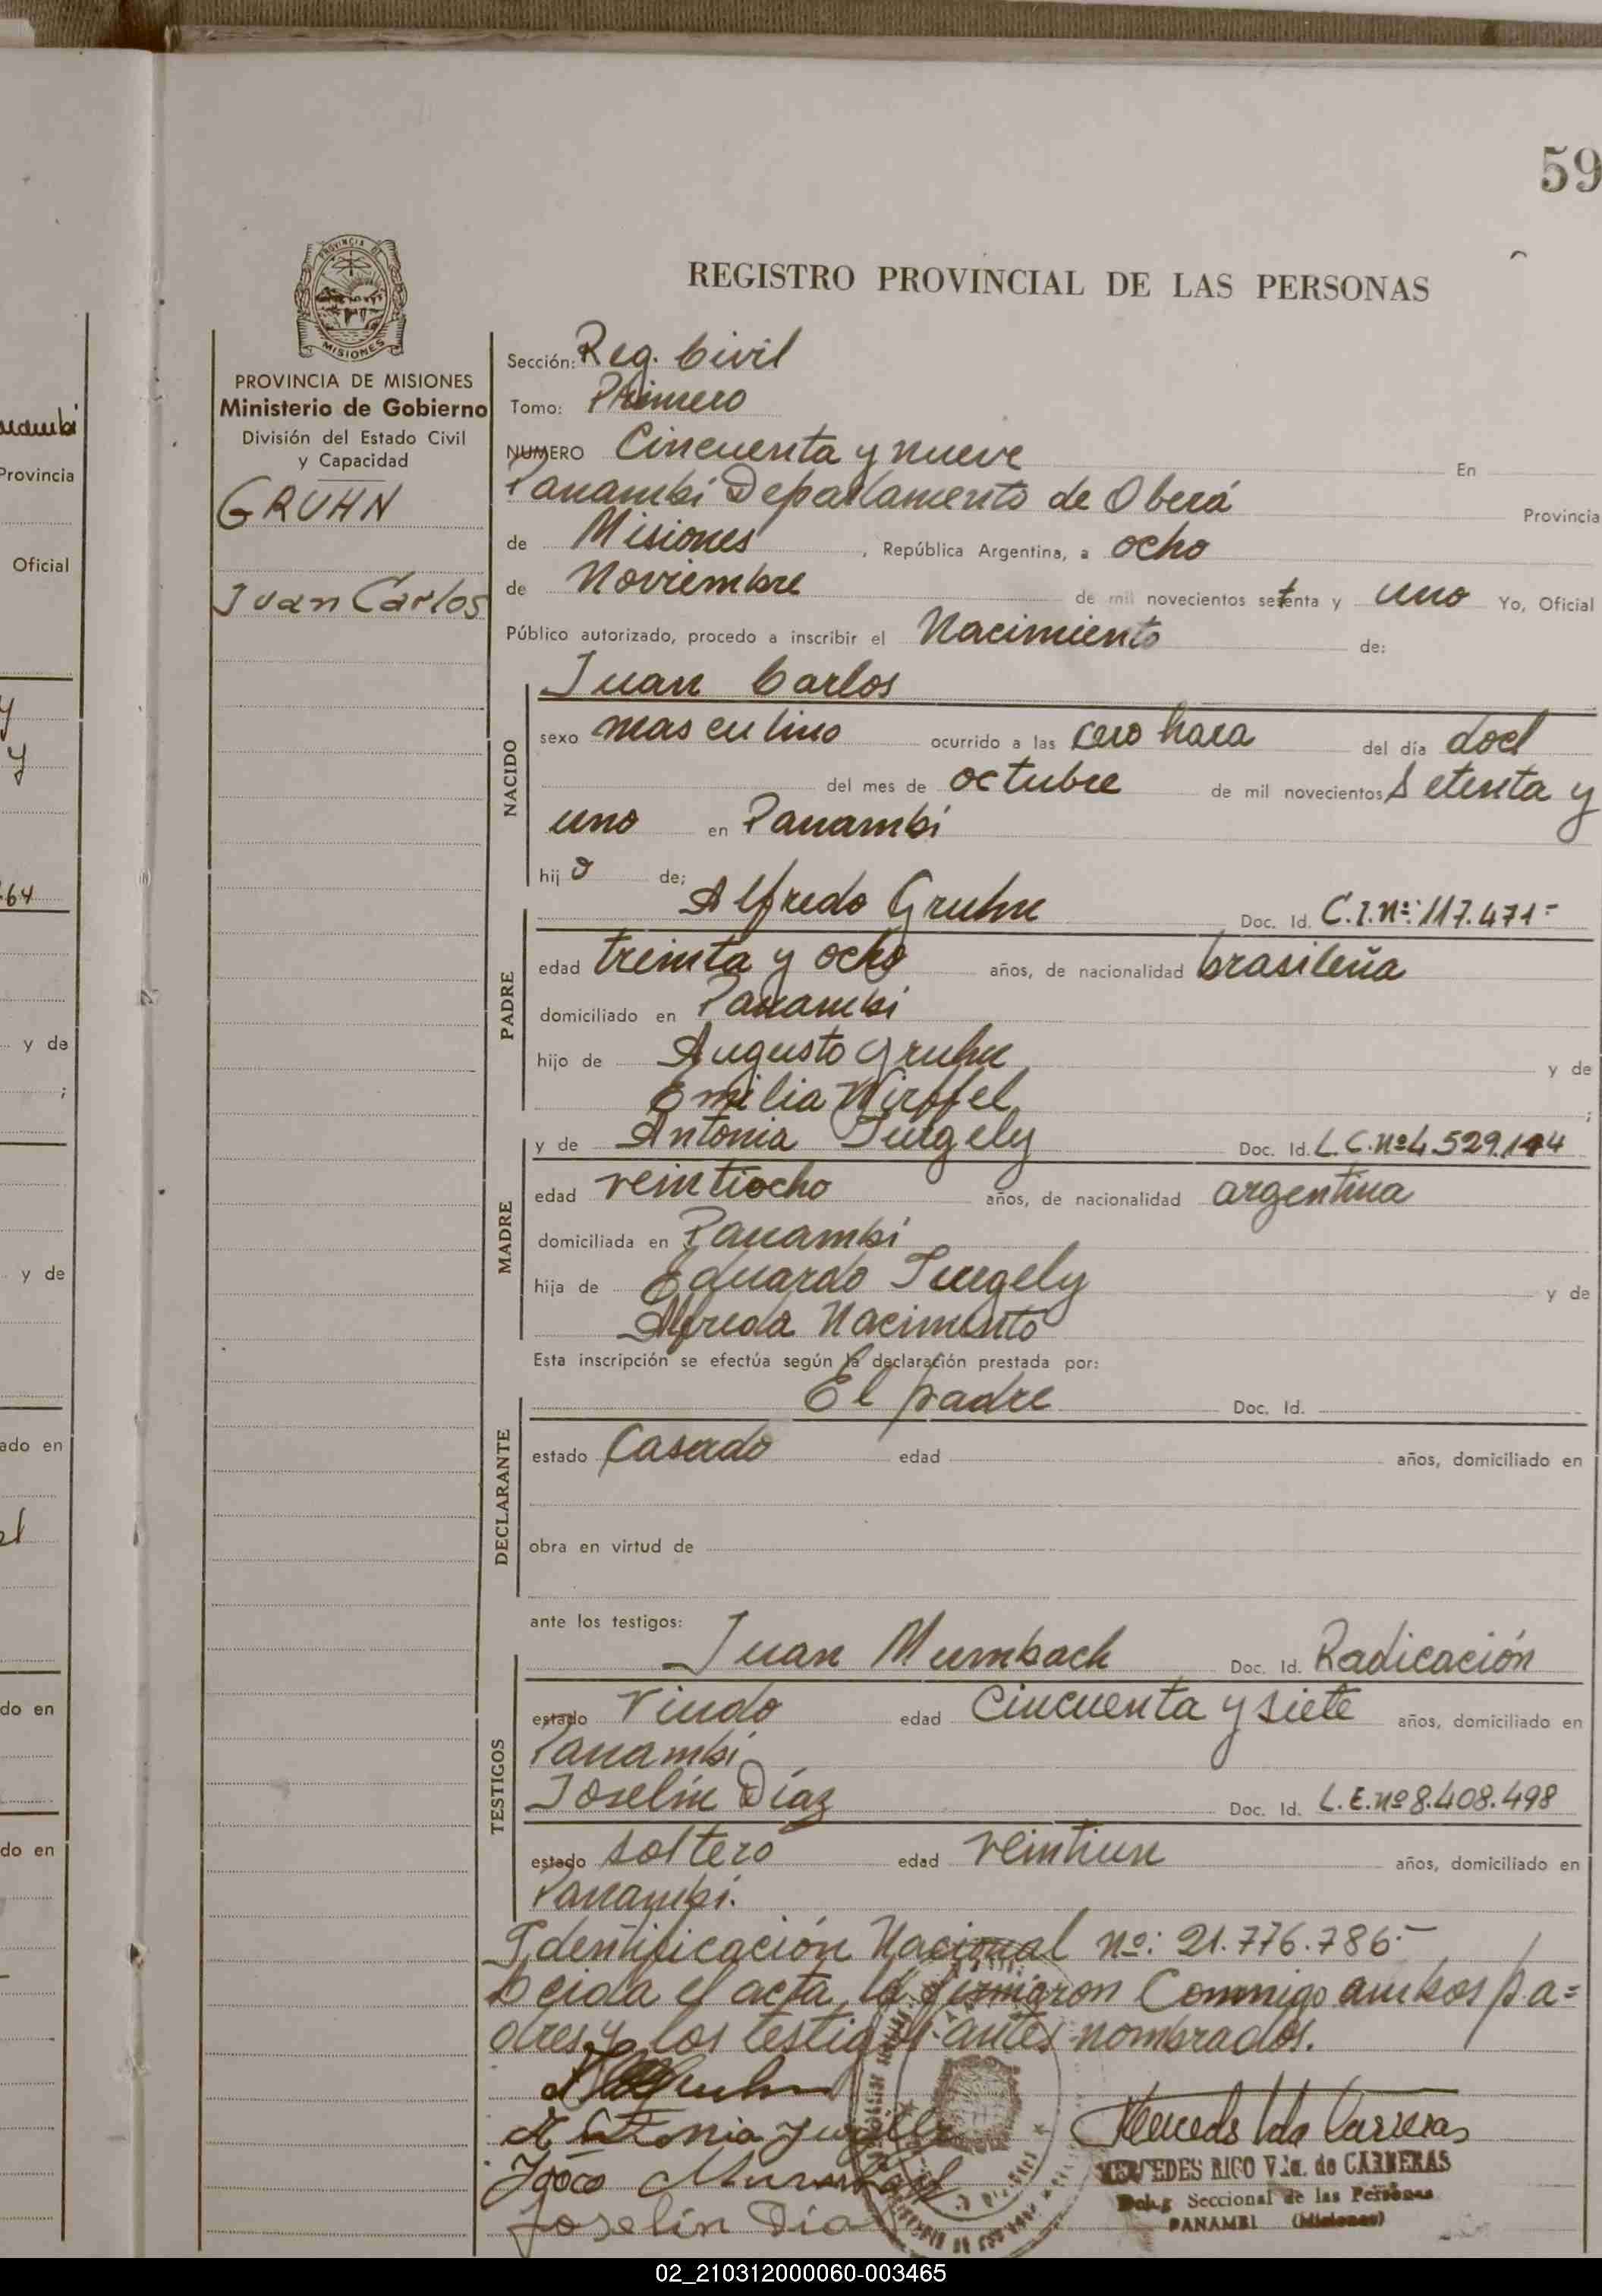 59
REGISTRO PROVINCIAL DE LAS PERSONAS
PROVINCIA DE
MISIONES
PROVINCIA DE MISIONES
Ministerio de Gobierno
División del Estado Civil
y Capacidad
GRUHN
Juan Carlos
Sección: Reg. Civil
Tomo: Primero
NUMERO Cincuenta y nueve En
Panambí Departamento de Oberá Provincia
de Misiones, República Argentina, a ocho
de Noviembre de mil novecientos setenta y uno Yo, Oficial
Público autorizado, procedo a inscribir el Nacimiento de:
NACIDO
Juan Carlos
sexo masculino ocurrido a las cero hora del día doce
del mes de octubre de mil novecientos Setenta y
uno en Panambí
hijo de;
PADRE
Alfredo Gruhn Doc. Id. C.I.Nº: 117.471-
edad treinta y ocho años, de nacionalidad brasileña
domiciliado en Panambí
hijo de Augusto Gruhn y de
Emilia ;
MADRE
y de Antonia Doc. Id. L.C.Nº 4.529.144
edad veintiocho años, de nacionalidad argentina
domiciliada en Panambí
hija de Eduardo y de
Alfreda Nacimento
Esta inscripción se efectúa según la declaración prestada por:
DECLARANTE
El padre Doc. Id.
estado Casado edad años, domiciliado en
obra en virtud de
ante los testigos:
TESTIGOS
Juan Mumbach Doc. Id. Radicación
estado Viudo edad Cincuenta y siete años, domiciliado en
Panambí
Joselín Díaz Doc. Id. L.E.nº 8.408.498
estado soltero edad veintiun años, domiciliado en
Panambí.
Identificación Nacional nº: 21.776.786.-
Leida el acta, la firmaron Conmigo ambos pa=
dres y los testigos antes nombrados.
Antonia
João
Joselín Díaz
MERCEDES RICO Vda. de CARRERAS
Seccional de las Personas
PANAMBI (Misiones)
Provincia
Oficial
y de
;
y de
ado en
do en
do en
02_210312000060-003465